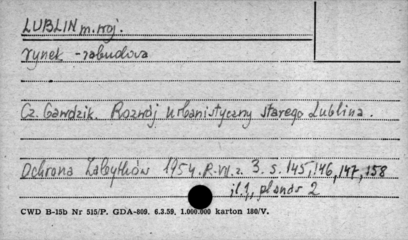 LUBLIN m. woj.
rynek - zabudowa
Cz. Gawdzik. Rozwój urbanistyczny starego Lublina.
Ochrona Zabytków 1954. R. VII. z. 3. s. 145, 146, 147, 158
il. 1, planów 2
CWD B-15b Nr 515/P. GDA-809. 6.3.59. 1.000.000 karton 180/V.